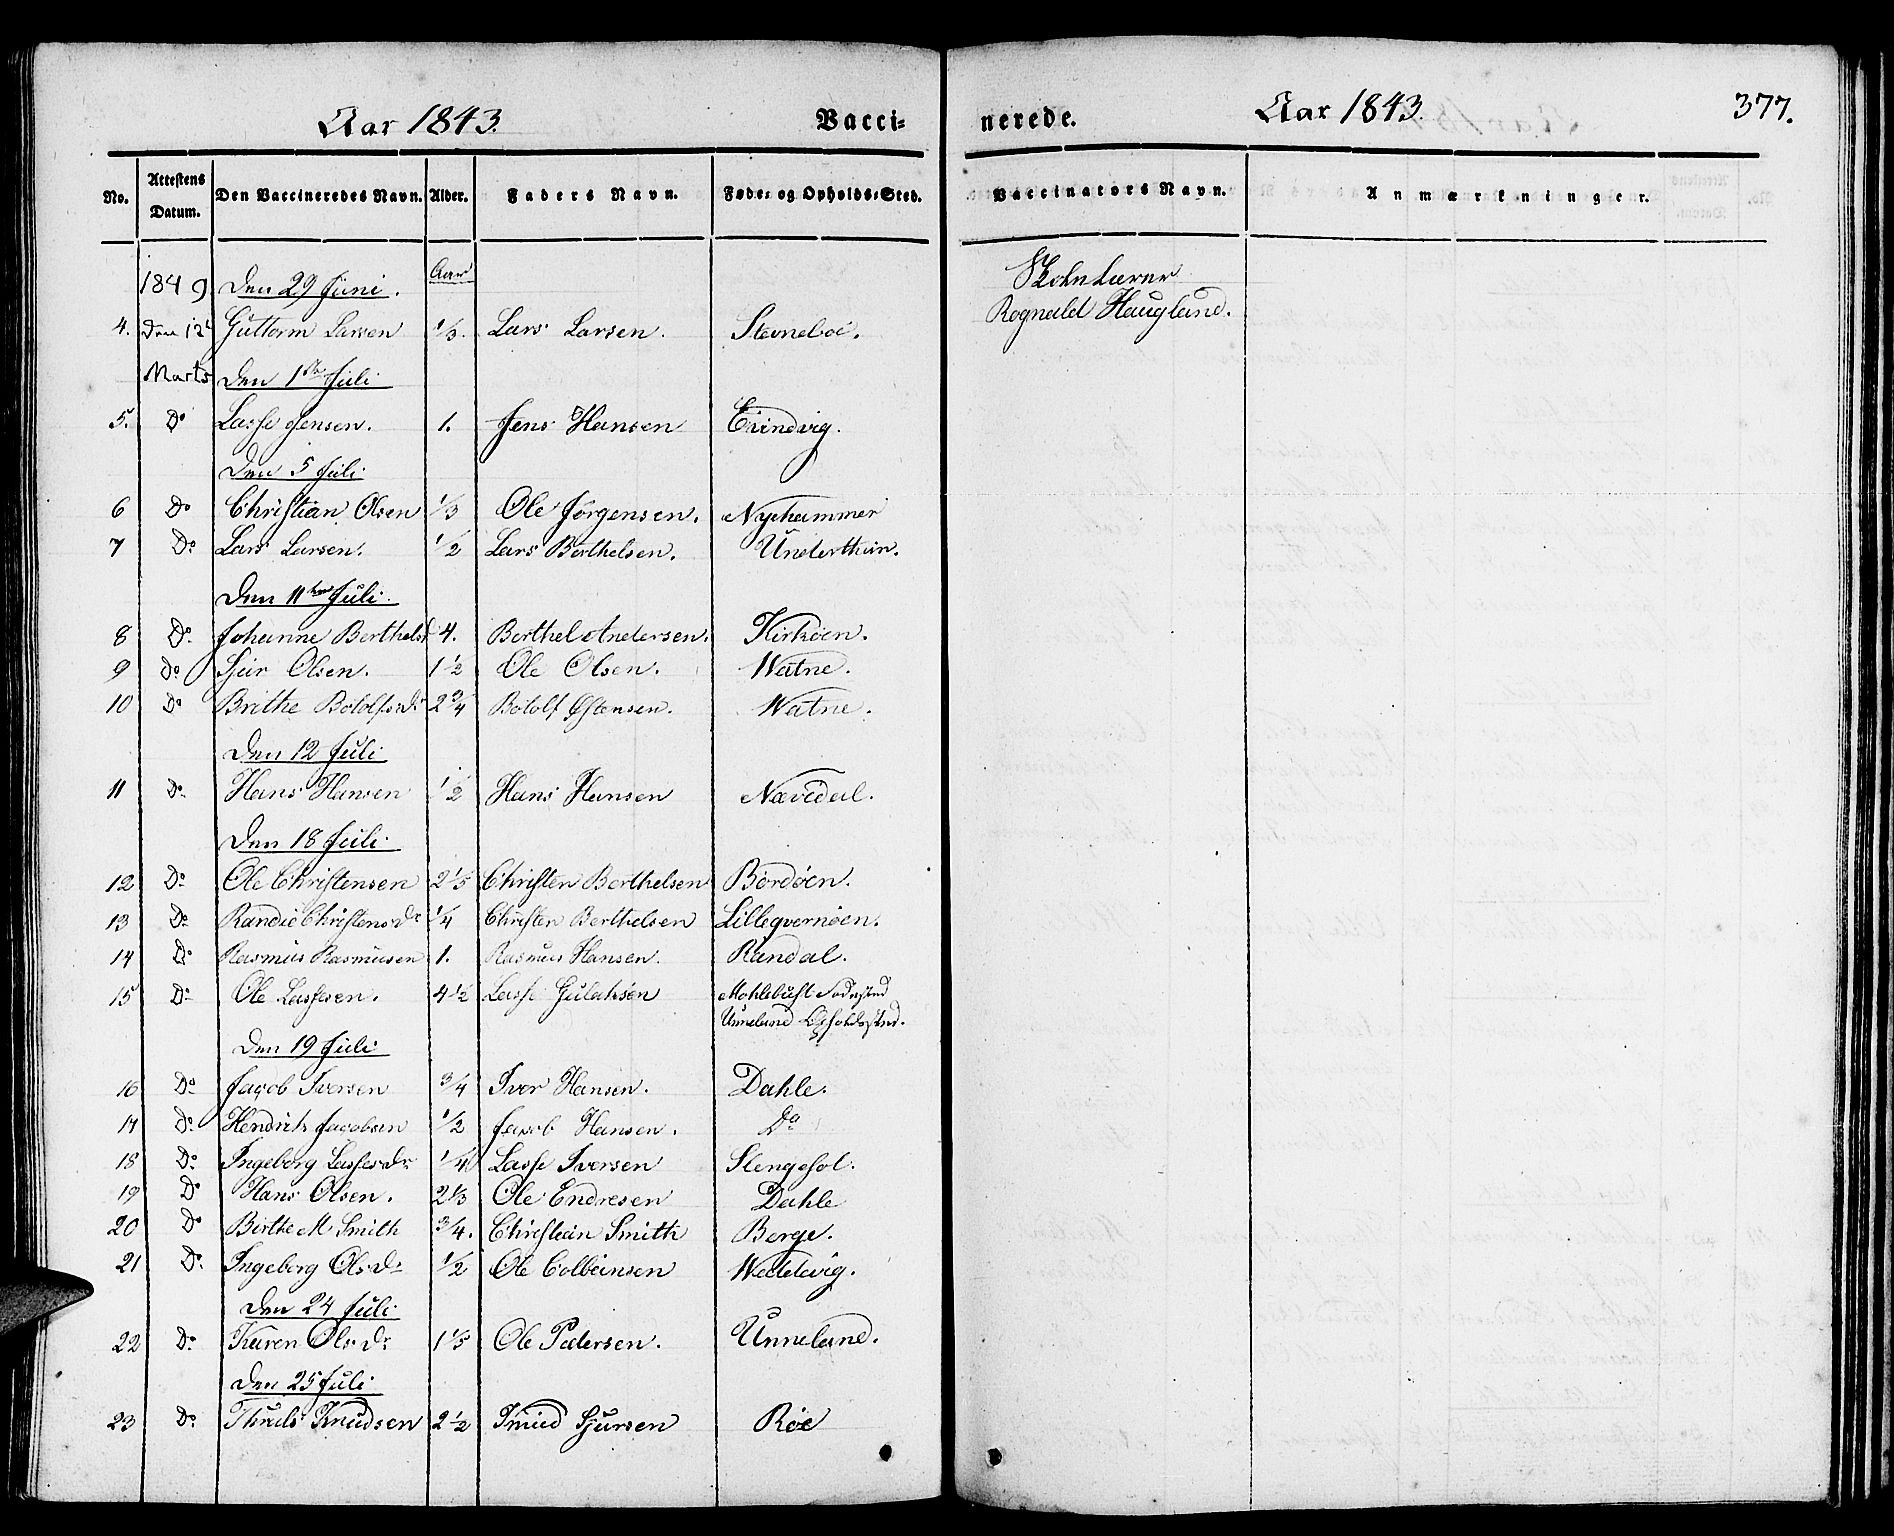 Aar 1843. Vacci- nerede. Aar 1843. 377.
No. Attestens Datum. Den Vaccineredes Navn. Alder. Faders Navn. Føde- og Opholds-Sted. Vaccinators Navn. Anmærkninger.
1849 Den 29 Juni. Aar
4. Den 12t Guttorm Larsen 1/3. Lars Larsen. Steneboe. Rognald Haugland.
Marts Den 1ste Juli
5. Do Lasse Jensen. 1. Jens Hansen Eivindvig.
Den 5 Juli
6 Do Christian Olsen 1/3 Ole Jørgensen. Nyehammer
7 Do Lars Larsen. 1/2 Lars Berthelsen. Underthun.
Den 11te Juli.
8 Do. Johanne Berthelsd 4. Berthel Andersen. Kirkøen.
9 Do Sjur Olsen. 1 1/2 Ole Olsen. Watne.
10 Do Brithe Botolfsdr 2 3/4 Botolf Østensen. Watne.
Den 12 Juli
11 Do Hans Hansen 1/2 Hans Hansen Nævedal.
Den 18 Juli.
12 Do Ole Christensen 2 1/5 Christen Berthelsen Bordøen.
13 Do Randie Christensdr 1/4 Christen Berthelsen Lilleqvernøen.
14 Do Rasmus Rasmusen 1. Rasmus Hansen. Randal.
15 Do Ole Lassesen. 4 1/2 Lasse Gulaksen Mohlebust Fødested
Unneland Opholdssted.
Den 19 Juli
16 Do Jacob Iversen 3/4 Iver Hansen. Dahle.
17 Do. Hendrik Jacobsen 1/2 Jacob Hansen. Do
18 Do Ingeborg Lassesdr 1/4 Lasse Iversen Slengesol.
19 Do Hans Olsen. 2 1/3 Ole Endresen Dahle
20 Do Birthe M Smith 3/4. Christian Smith Berge.
21 Do. Ingeborg Olsdr 1/2 Ole Colbeinsen Wadelvig.
Den 24 Juli
22 Do Karen Olsdr 1 1/5 Ole Pedersen. Unneland.
Den 25 Juli
23 Do. Thruls Knudsen 2 1/2 Knud Sjursen Røe